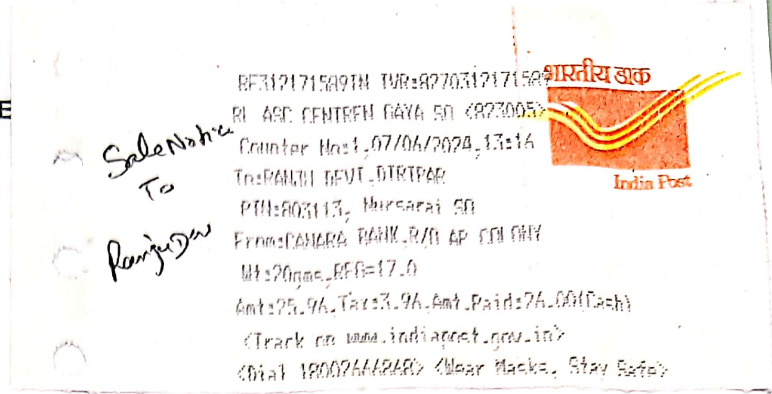 भारतीय डाक
India Post
RF312171589IN IVR:8270312171589
RL ASC CENTREN GAYA SO <823005>
Counter No:1,07/06/2024,13:16
To:RANJU DEVI,DIRIPAR
PIN:803113, Nursarai SO
From:CANARA BANK,R/O AP COLONY
Wt:20gms,REG=17.0
Amt:25.96,Tax:3.96,Amt.Paid:26.00(Cash)
<Track on www.indiapost.gov.in>
<Dial 18002666868> <Wear Masks, Stay Safe>
Sale Notice
To
Ranju Devi
E